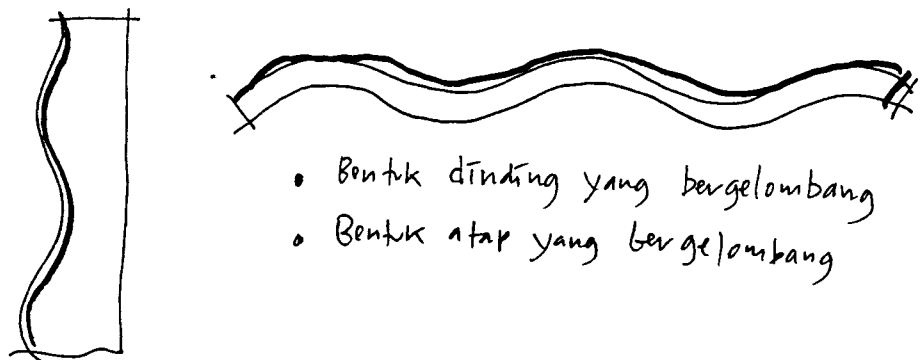 • Bentuk dinding yang bergelombang
• Bentuk atap yang bergelombang